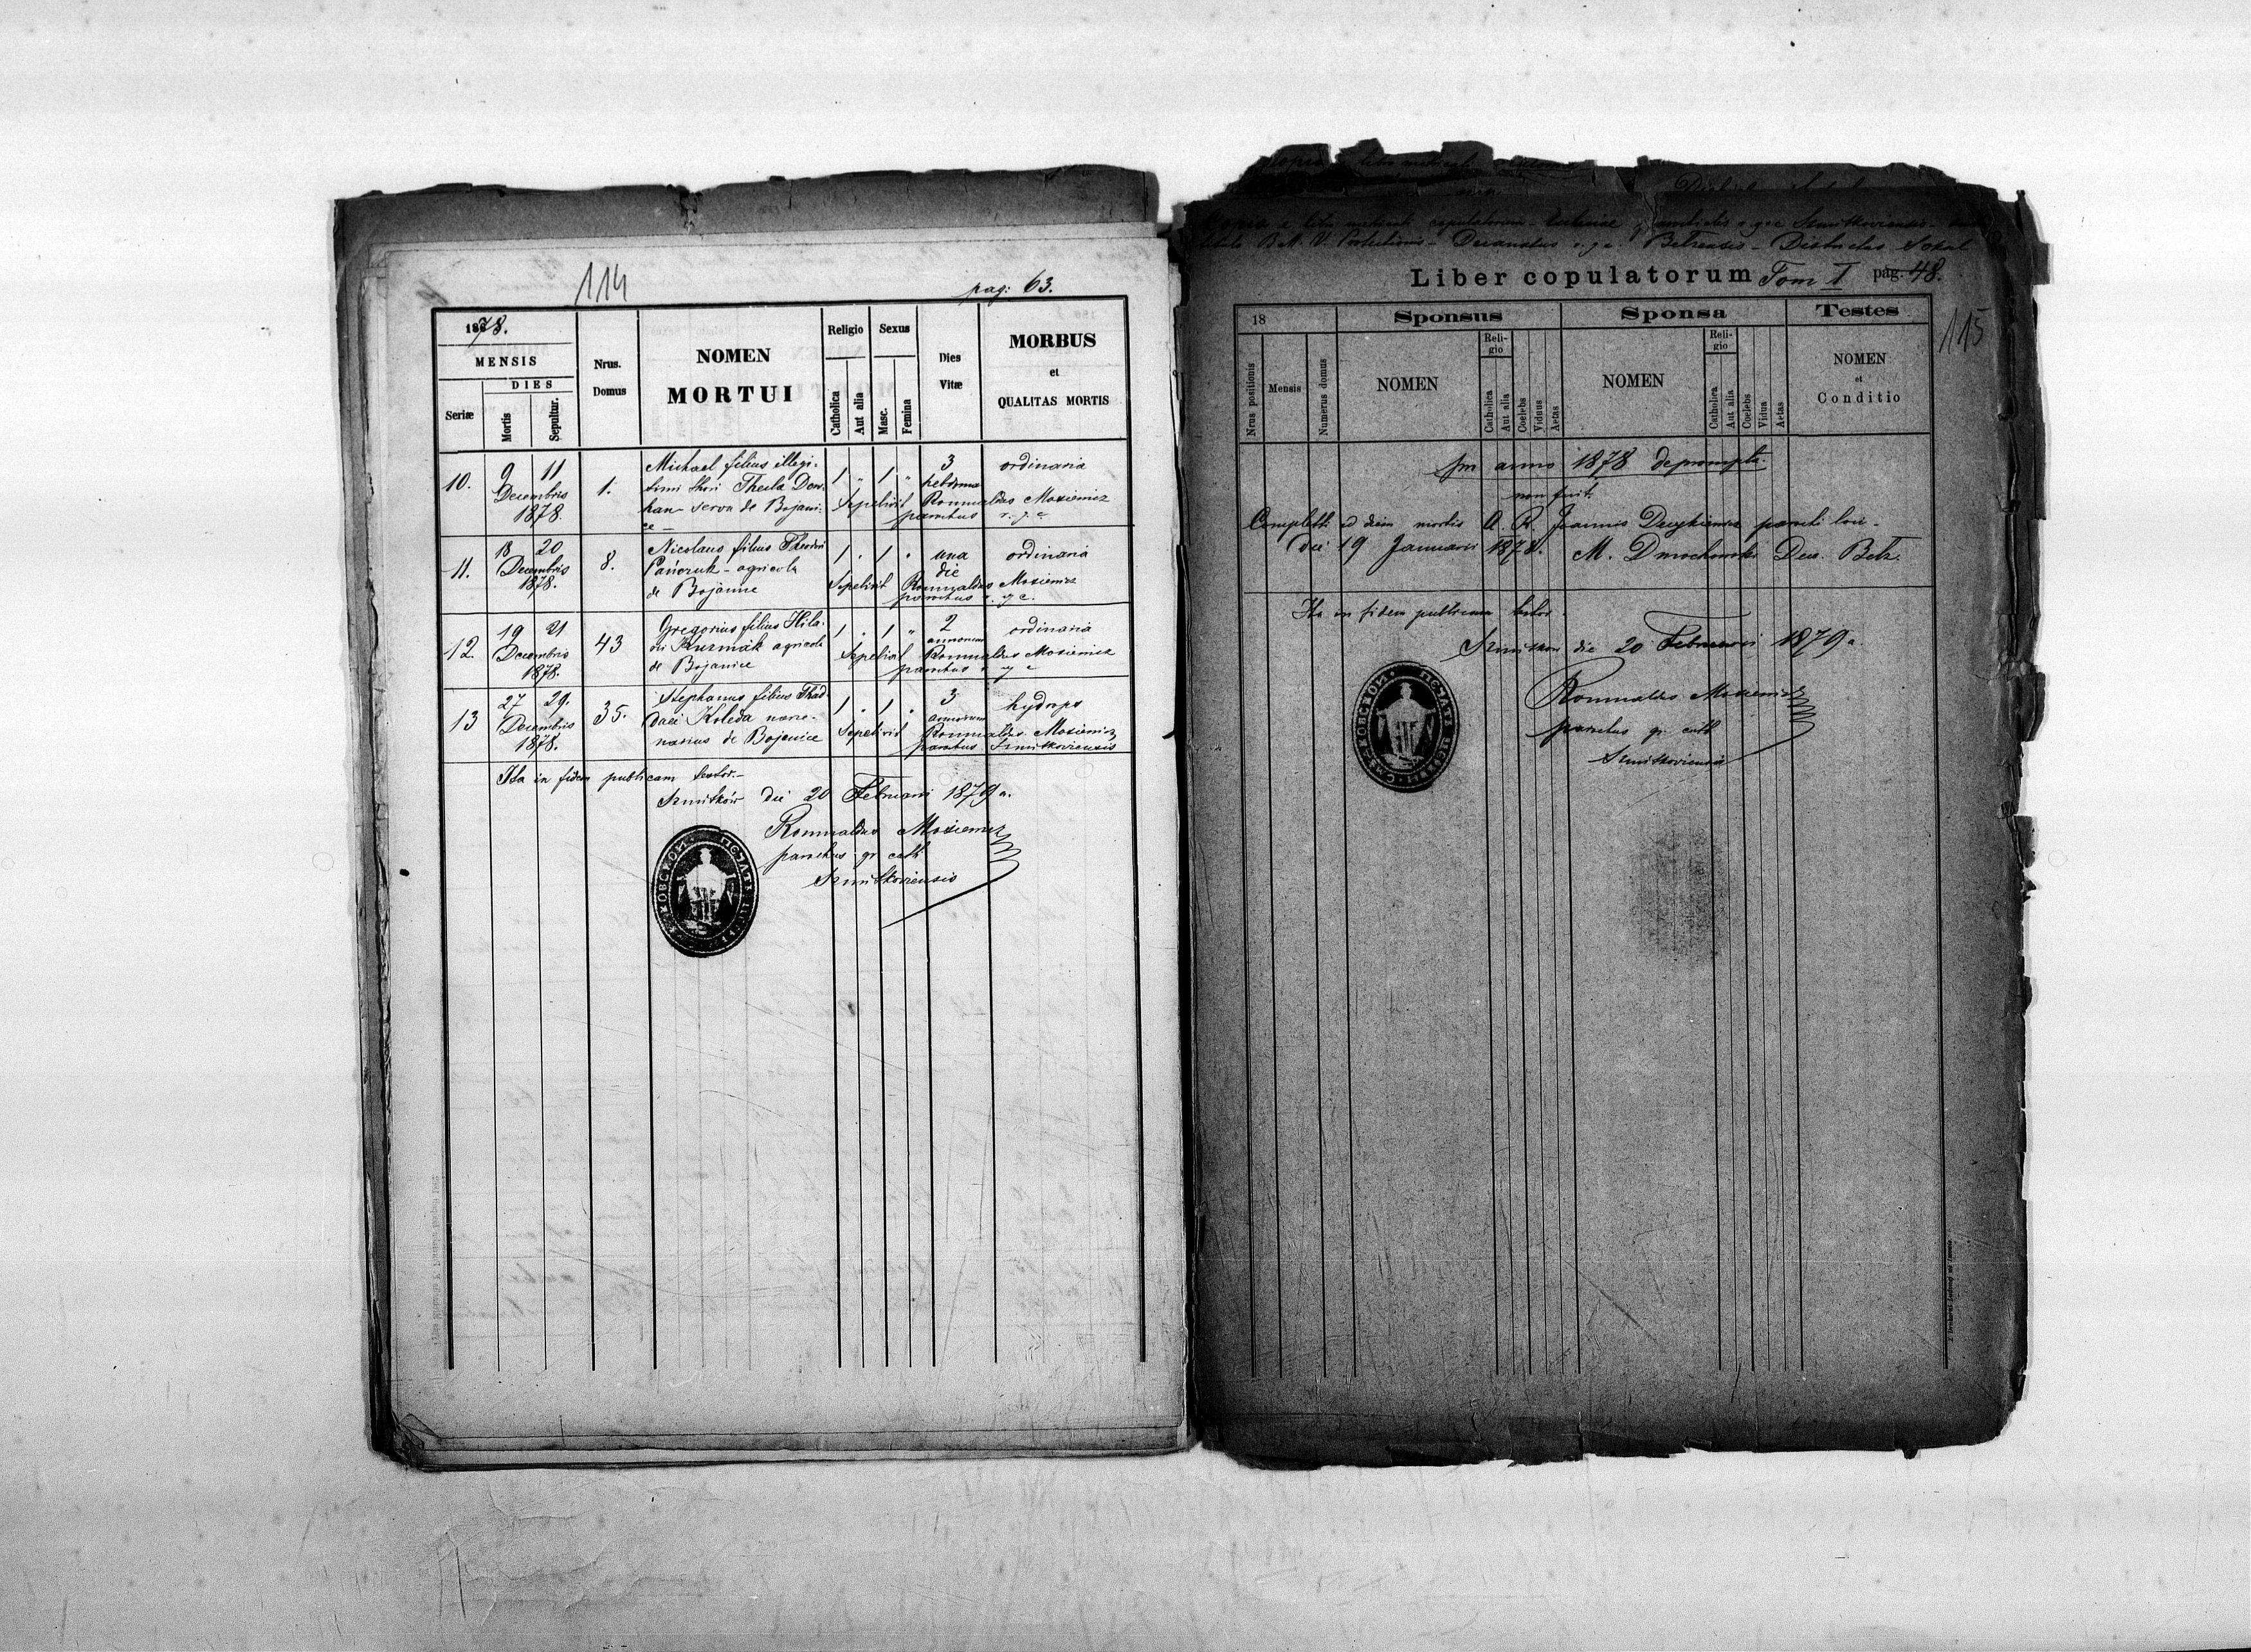 114
pag: 63.
1878.
MENSIS
DIES
Seriæ
Mortis
Sepultur.
Nrus.
Domus
NOMEN
MORTUI
Religio
Catholica
Aut alia
Sexus
Masc.
Femina
Dies
Vitæ
MORBUS
et
QUALITAS MORTIS
10.
9 11
Decembris
1878.
1.
Michael filius illegi-
timi thori Thecla
serva de Bojani-
ce
1 " 1 "
3
ordinaria
Sepelivit Romualdus
parochus r. g. c.
11.
18 20
Decembris
1878.
8.
Nicolaus filius Theodori
Pańczuk - agricola
de Bojanice
1 " 1 "
una
die
ordinaria
Sepelivit Romualdus
parochus r. g. c.
12.
19 21
Decembris
1878.
43
Gregorius filius Hila-
rii Kuzmak agricola
de Bojanice
1 " 1 "
2
annorum
ordinaria
Sepelivit Romualdus
parochus r. g. c.
13
27 29.
Decembris
1878.
35.
Stephanus filius Thad-
daei Koleda
de Bojanice
1 " 1 "
3
annorum
hydrops
Sepelivit Romualdus
parochus Szmitkoviensis
Ita in fidem publicam testor.-
Szmitków die 20 Februarii 1879 a.
Romualdus
parochus gr. cath
Szmitkoviensis
Copia e libro metricali copulatorum - Ecclesiae
tituli B. M. V. Protectionis - Decanatus r. g. c. Belzensis - Districtus Sokal
Liber copulatorum Tom I pag. 48.
115
18
Sponsus
Sponsa
Testes
Nrus positionis
Mensis
Numerus domus
NOMEN
Religio
Catholica
Aut alia
Coelebs
Viduus
Aetas
NOMEN
Religio
Catholica
Aut alia
Coelebs
Vidua
Aetas
NOMEN
et
Conditio
pro anno 1878 deprompta
non fuit.
ad diem mortis A. R. Joannis parochi loci -
die 19 Januarii 1878. M. Dmochowski Dec. Belz.
Ita in fidem publicam testor.
Szmitkow die 20 Februarii 1879 a.
Romualdus
parochus gr. cath
Szmitkoviensis